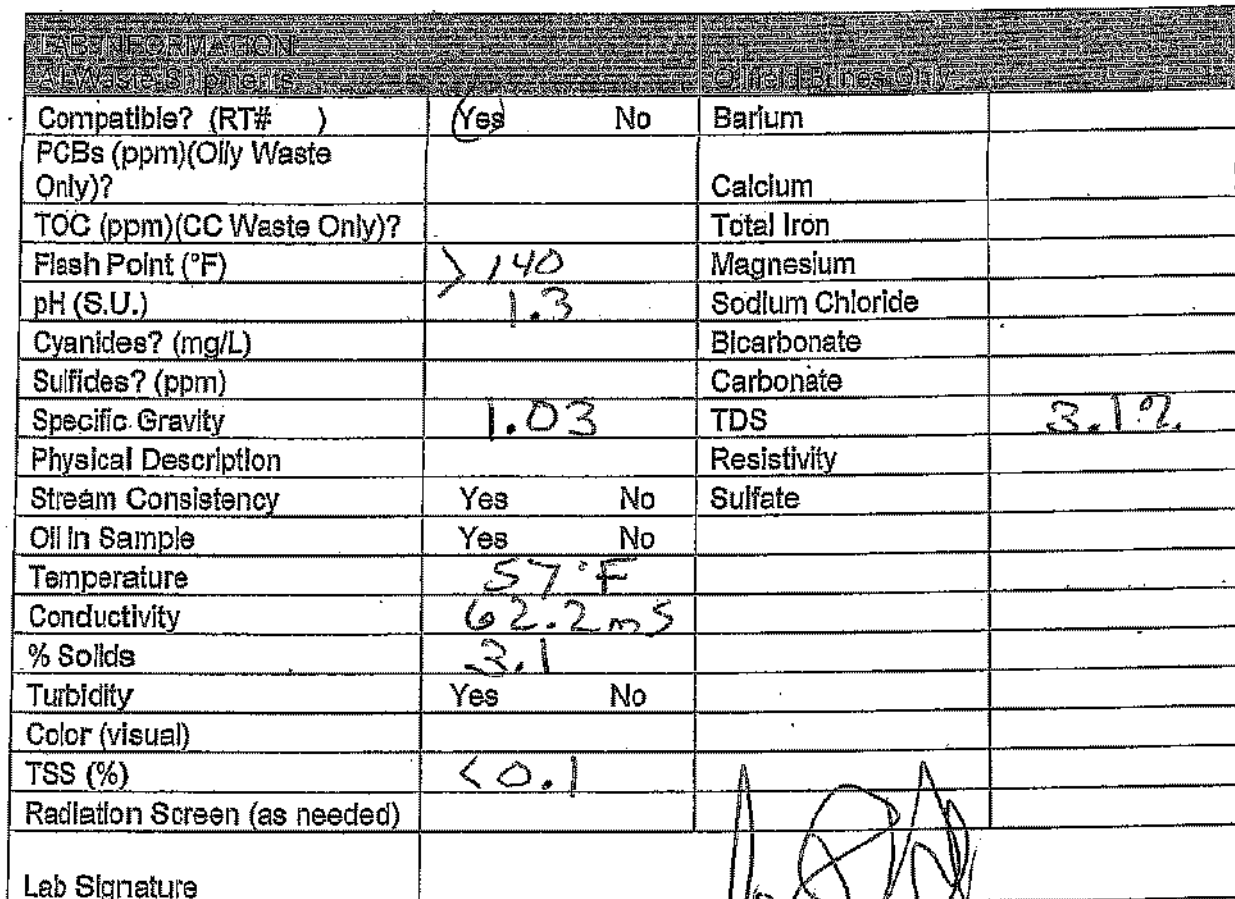 LAB INFORMATION
All Waste Shipments Oilfield Brines Only
Compatible? (RT# ) Yes No Barium
PCBs (ppm)(Oily Waste
Only)? Calcium
TOC (ppm)(CC Waste Only)? Total Iron
Flash Point (°F) >140 Magnesium
pH (S.U.) 1.3 Sodium Chloride
Cyanides? (mg/L) Bicarbonate
Sulfides? (ppm) Carbonate
Specific Gravity 1.03 TDS 3.1%
Physical Description Resistivity
Stream Consistency Yes No Sulfate
Oil in Sample Yes No
Temperature 57°F
Conductivity 62.2mS
% Solids 3.1
Turbidity Yes No
Color (visual)
TSS (%) <0.1
Radiation Screen (as needed)
Lab Signature